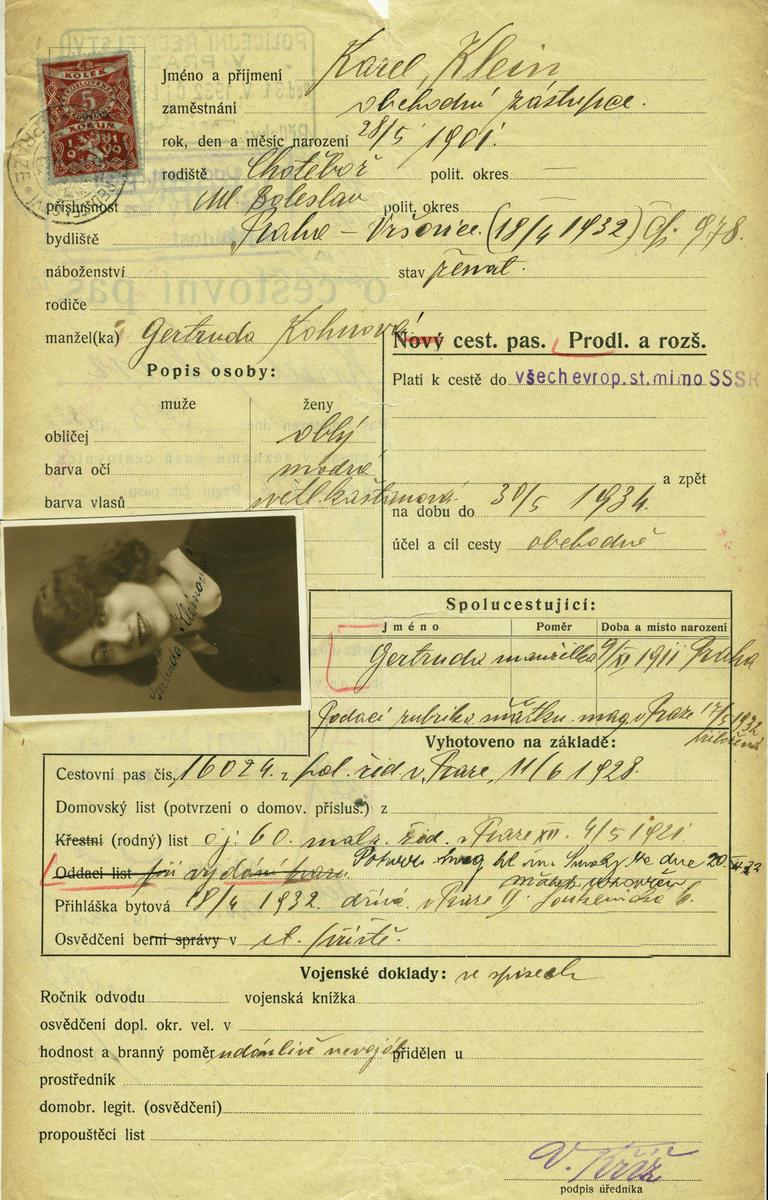 KOLEK
5
KORUN
Jméno a příjmení Karel Klein
zaměstnání obchodní zástupce.
rok, den a měsíc narození 28/5 1901.
rodiště Chotěboř polit. okres —
příslušnost Ml. Boleslav polit. okres —
bydliště Praha – Vršovice (18/4 1932) čp. 978.
náboženství stav ženat.
rodiče
manžel(ka) Gertruda Kohnová
Nový cest. pas. Prodl. a rozš.
Popis osoby:
Platí k cestě do všech evrop. st. mimo SSSR
muže ženy
obličej oblý
barva očí modrá
barva vlasů světl. kaštanová
a zpět
na dobu do 30/5 1934.
účel a cíl cesty obchodně
Gertruda Kleinová
Spolucestující:
Jméno Poměr Doba a místo narození
Gertruda manželka 9/XI 1911 Praha
Podací rubrika mag. v Praze 17/5 1932
Vyhotoveno na základě:
Cestovní pas čís. 16024 z pol. řed. v Praze, 11/6 1928.
Domovský list (potvrzení o domov. přísluš.) z
Křestní (rodný) list čj. 60. v Praze XII. 4/5 1921
Oddací list při vydání pasu. mag. hl. m. Prahy ze dne 20.
Přihláška bytová 18/4 1932. dříve v Praze II. 
Osvědčení berní správy v
Vojenské doklady: ve spisech
Ročník odvodu vojenská knížka
osvědčení dopl. okr. vel. v
hodnost a branný poměr udánlivě nevoják přidělen u
prostředník
domobr. legit. (osvědčení)
propouštěcí list
V. Kříž
podpis úředníka